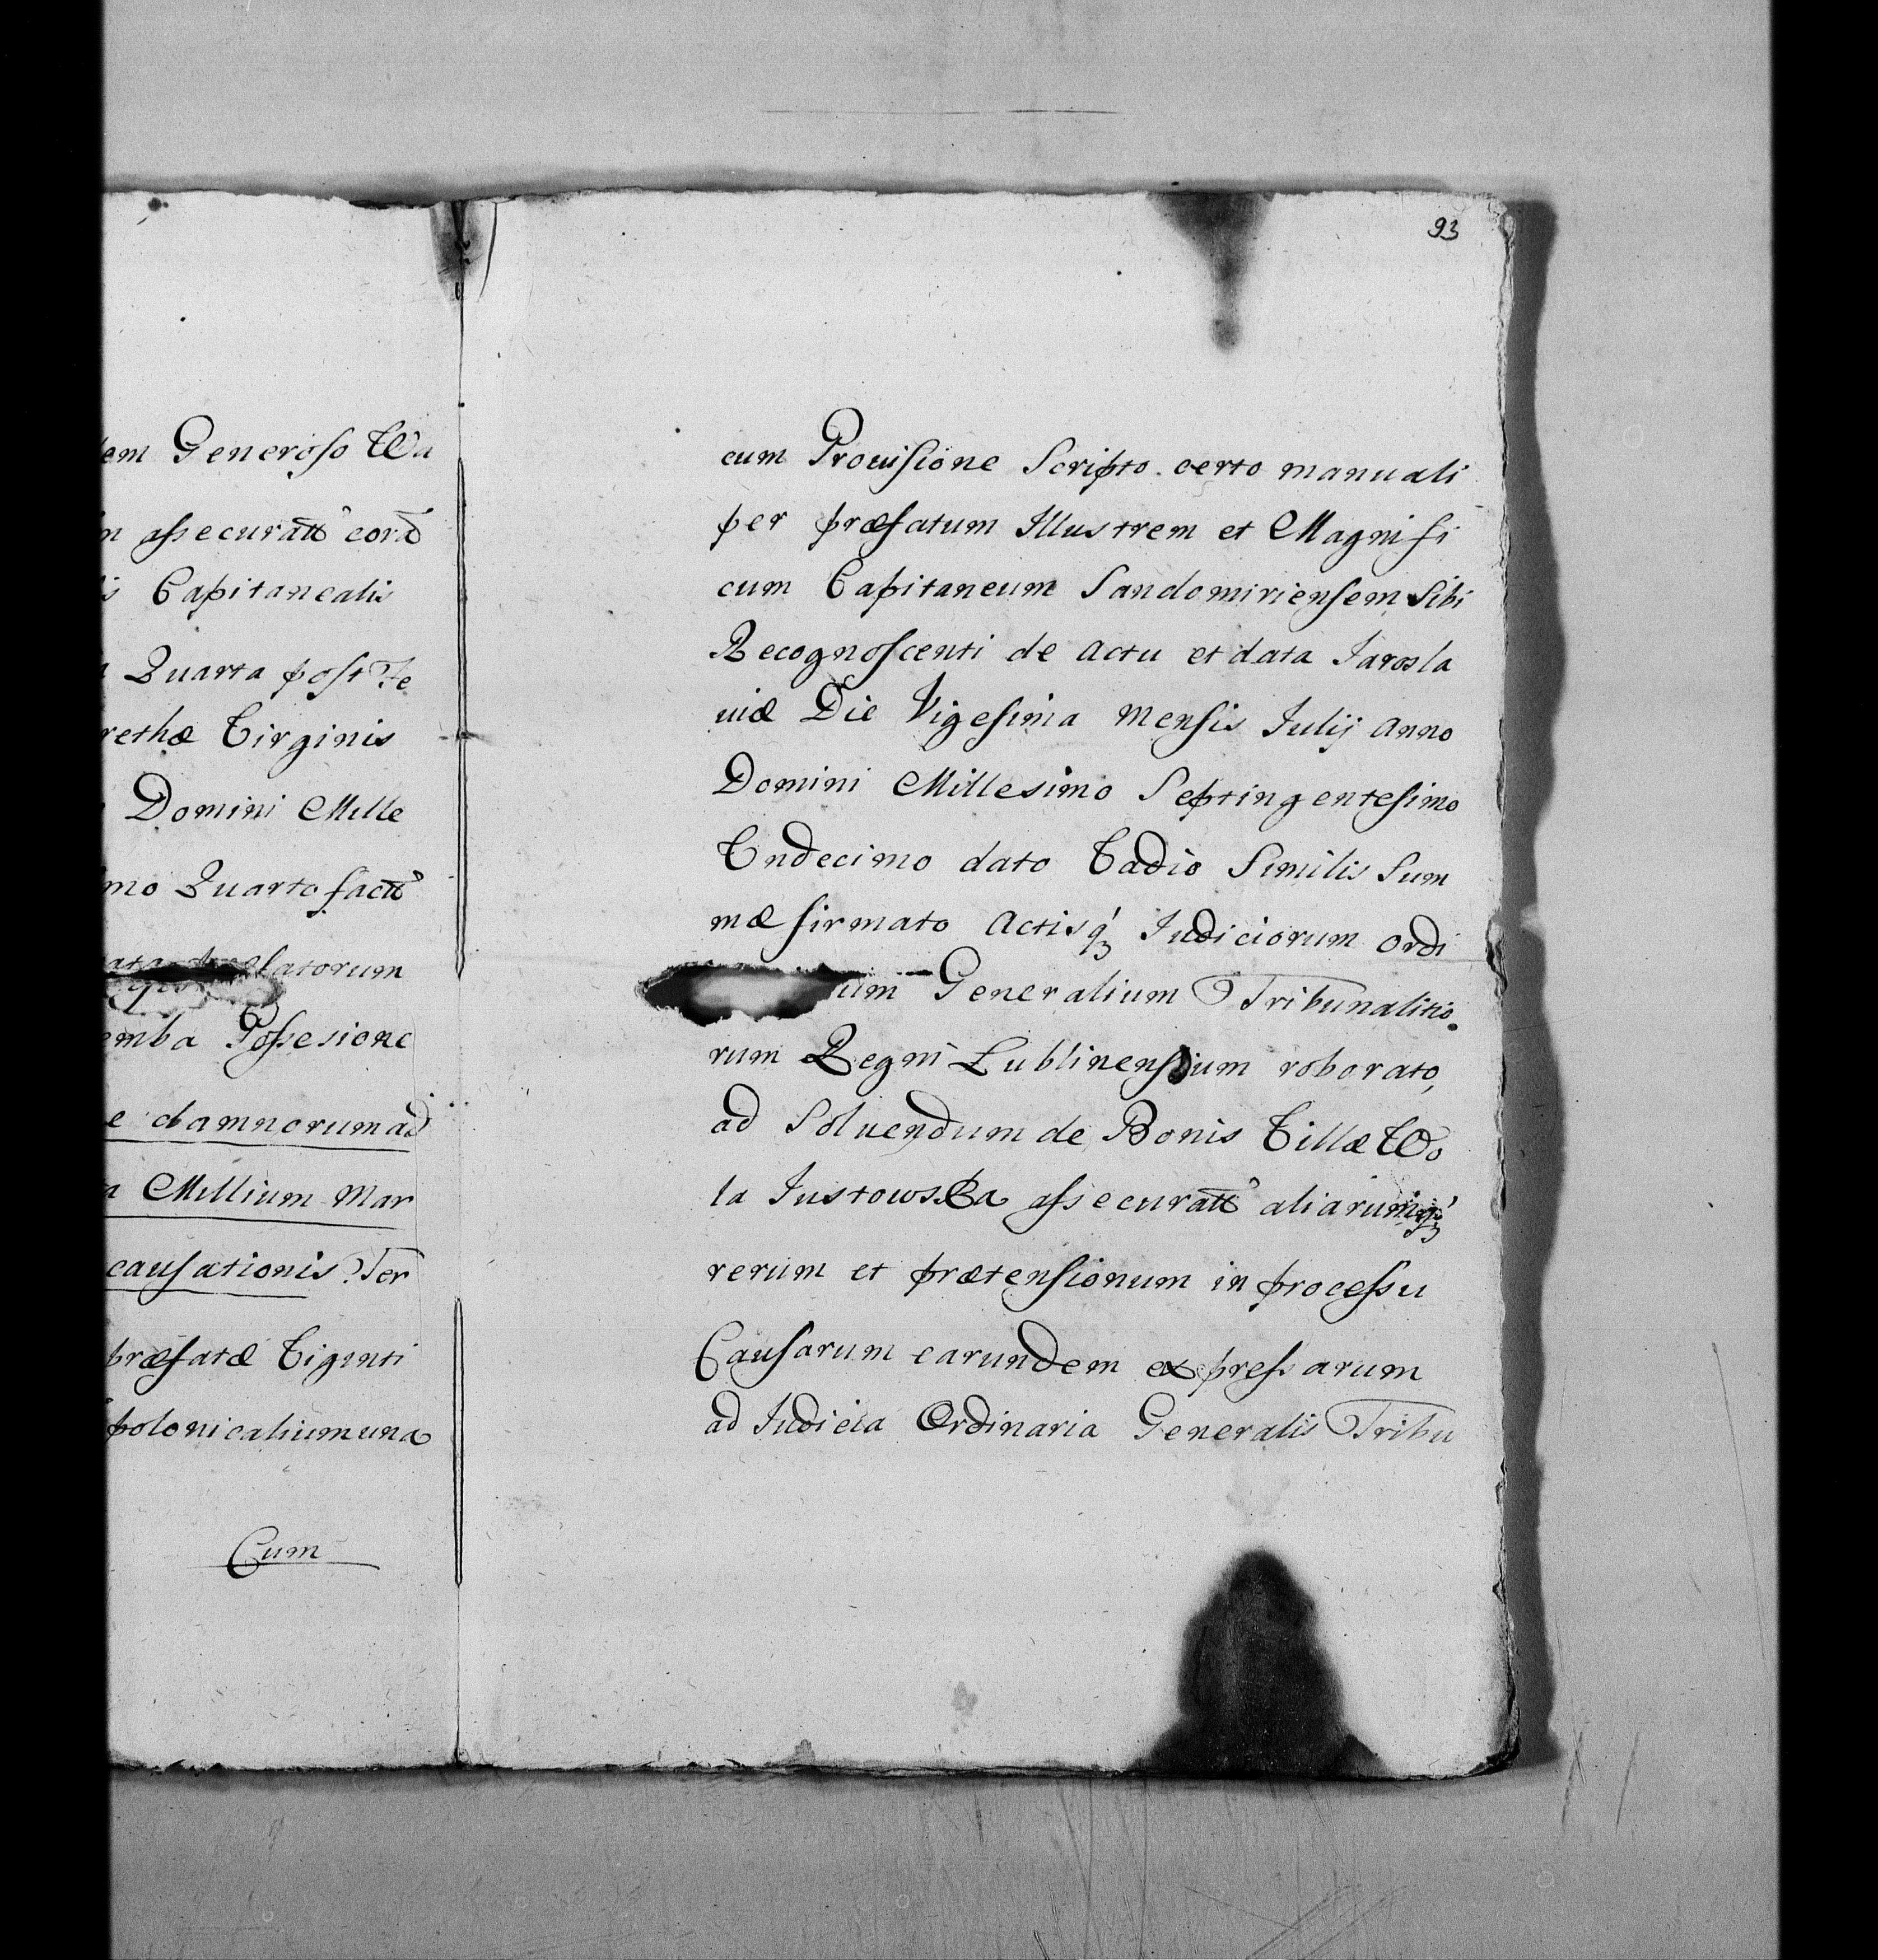 em Generoso Wa
n assecuratt̃ cord̃
is Capitanealis
a Quarta post Fe
rethæ Virginis
Domini Mille
imo Quarto fact̃
latorum
emba Possesione
e damnorum ad
a Millium Mar
causationis Ter
præfatæ Viginti
polonicalium una
Cum
93
cum Prouisione Scripto certo manuali
per præfatum Illustrem et Magnifi
cum Capitaneum Sandomiriensem Sibi
Recognoscenti de Actu et data Jarosla
uiæ Die Vigesima Mensis Julij Anno
Domini Millesimo Septingentesimo
Undecimo dato Vadio Similis Sum
mæ firmato Actisq́ Judiciorum Ordi
um Generalium Tribunalitio
rum Regni Lublinensium roborato,
ad Soluendum de Bonis Villæ Wo
la Justowska assecuratt̃ aliarumq́
rerum et prætensionum in processu
Causarum earundem expressarum
ad Judicia Ordinaria Generalis Tribu